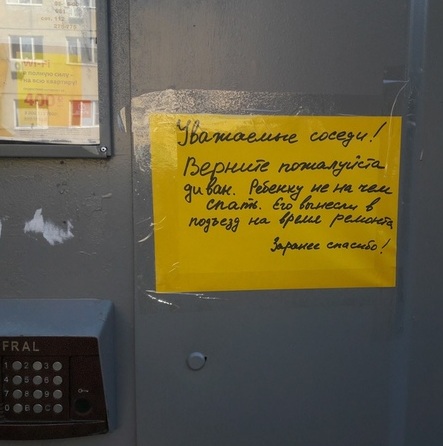 WiFi
в полную силу -
на всю квартиру!
400
Уважаемые соседи!
Верните пожалуйста
диван. Ребенку не на чем
спать. Его вынесли в
подъезд на время ремонта
Заранее спасибо!
FRAL
1 2 3
4 5 6
7 8 9
0 В